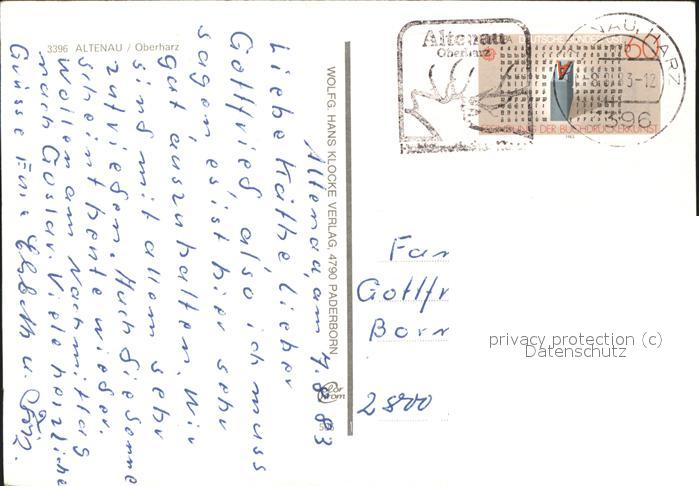 3396 ALTENAU / Oberharz
WOLFG. HANS KLOCKE VERLAG, 4790 PADERBORN
Altenau, am 7.8.83
Liebe Käthe lieber
Gottfried also ich muss
sagen es ist hier sehr
gut auszuhalten. Wir
sind mit allem sehr
zufrieden. Auch die Sonne
scheint heute wieder.
Wollen am Nachmittag
nach Goslar. Viele herzliche
Grüsse Eure
Altenau
Oberharz
DEUTSCHE BUNDES
60
DER BUCHDRUCKERKUNST
NAU, HARZ
83-12
3396
Fam
Gottfr
Born
2800
privacy protection (c)
Datenschutz